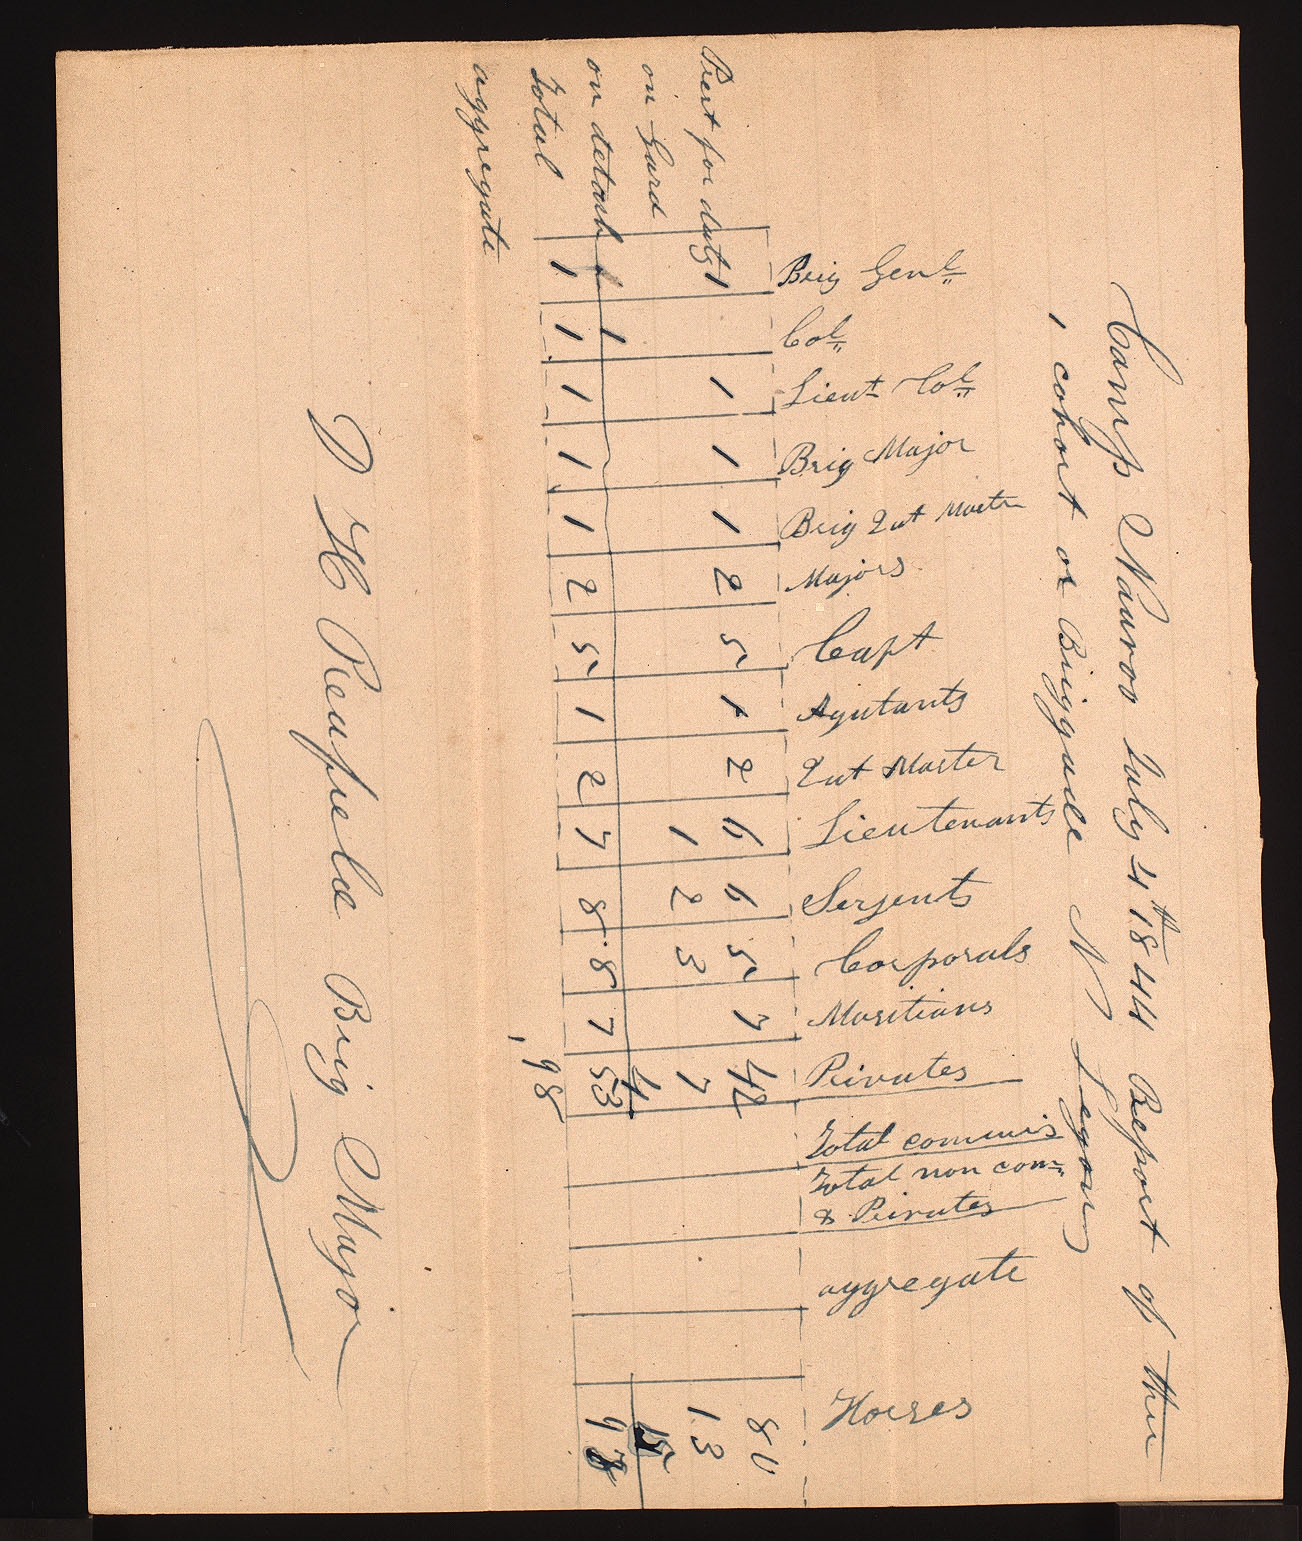 Camp Nauvoo July 4th 1844 Report of the
1 cohort or Briggade N Legon
Brig Genl Col Lieut Col Brig Major Brig Qut Mastr Majors Capt Agutants Qut Master Lieutenants Serjents Corporals Musitians Privates Total commis Total non com & Privates aggregate Horses
Prest for duty 1 1 1 1 2 5 1 2 6 6 5 7 42 80
on Gard 1 2 3 7 13
on detach 1 4 5
Total 1 1 1 1 1 2 5 1 2 7 8 8 7 53 98
aggregate 98
D H Reupeld Brig Major